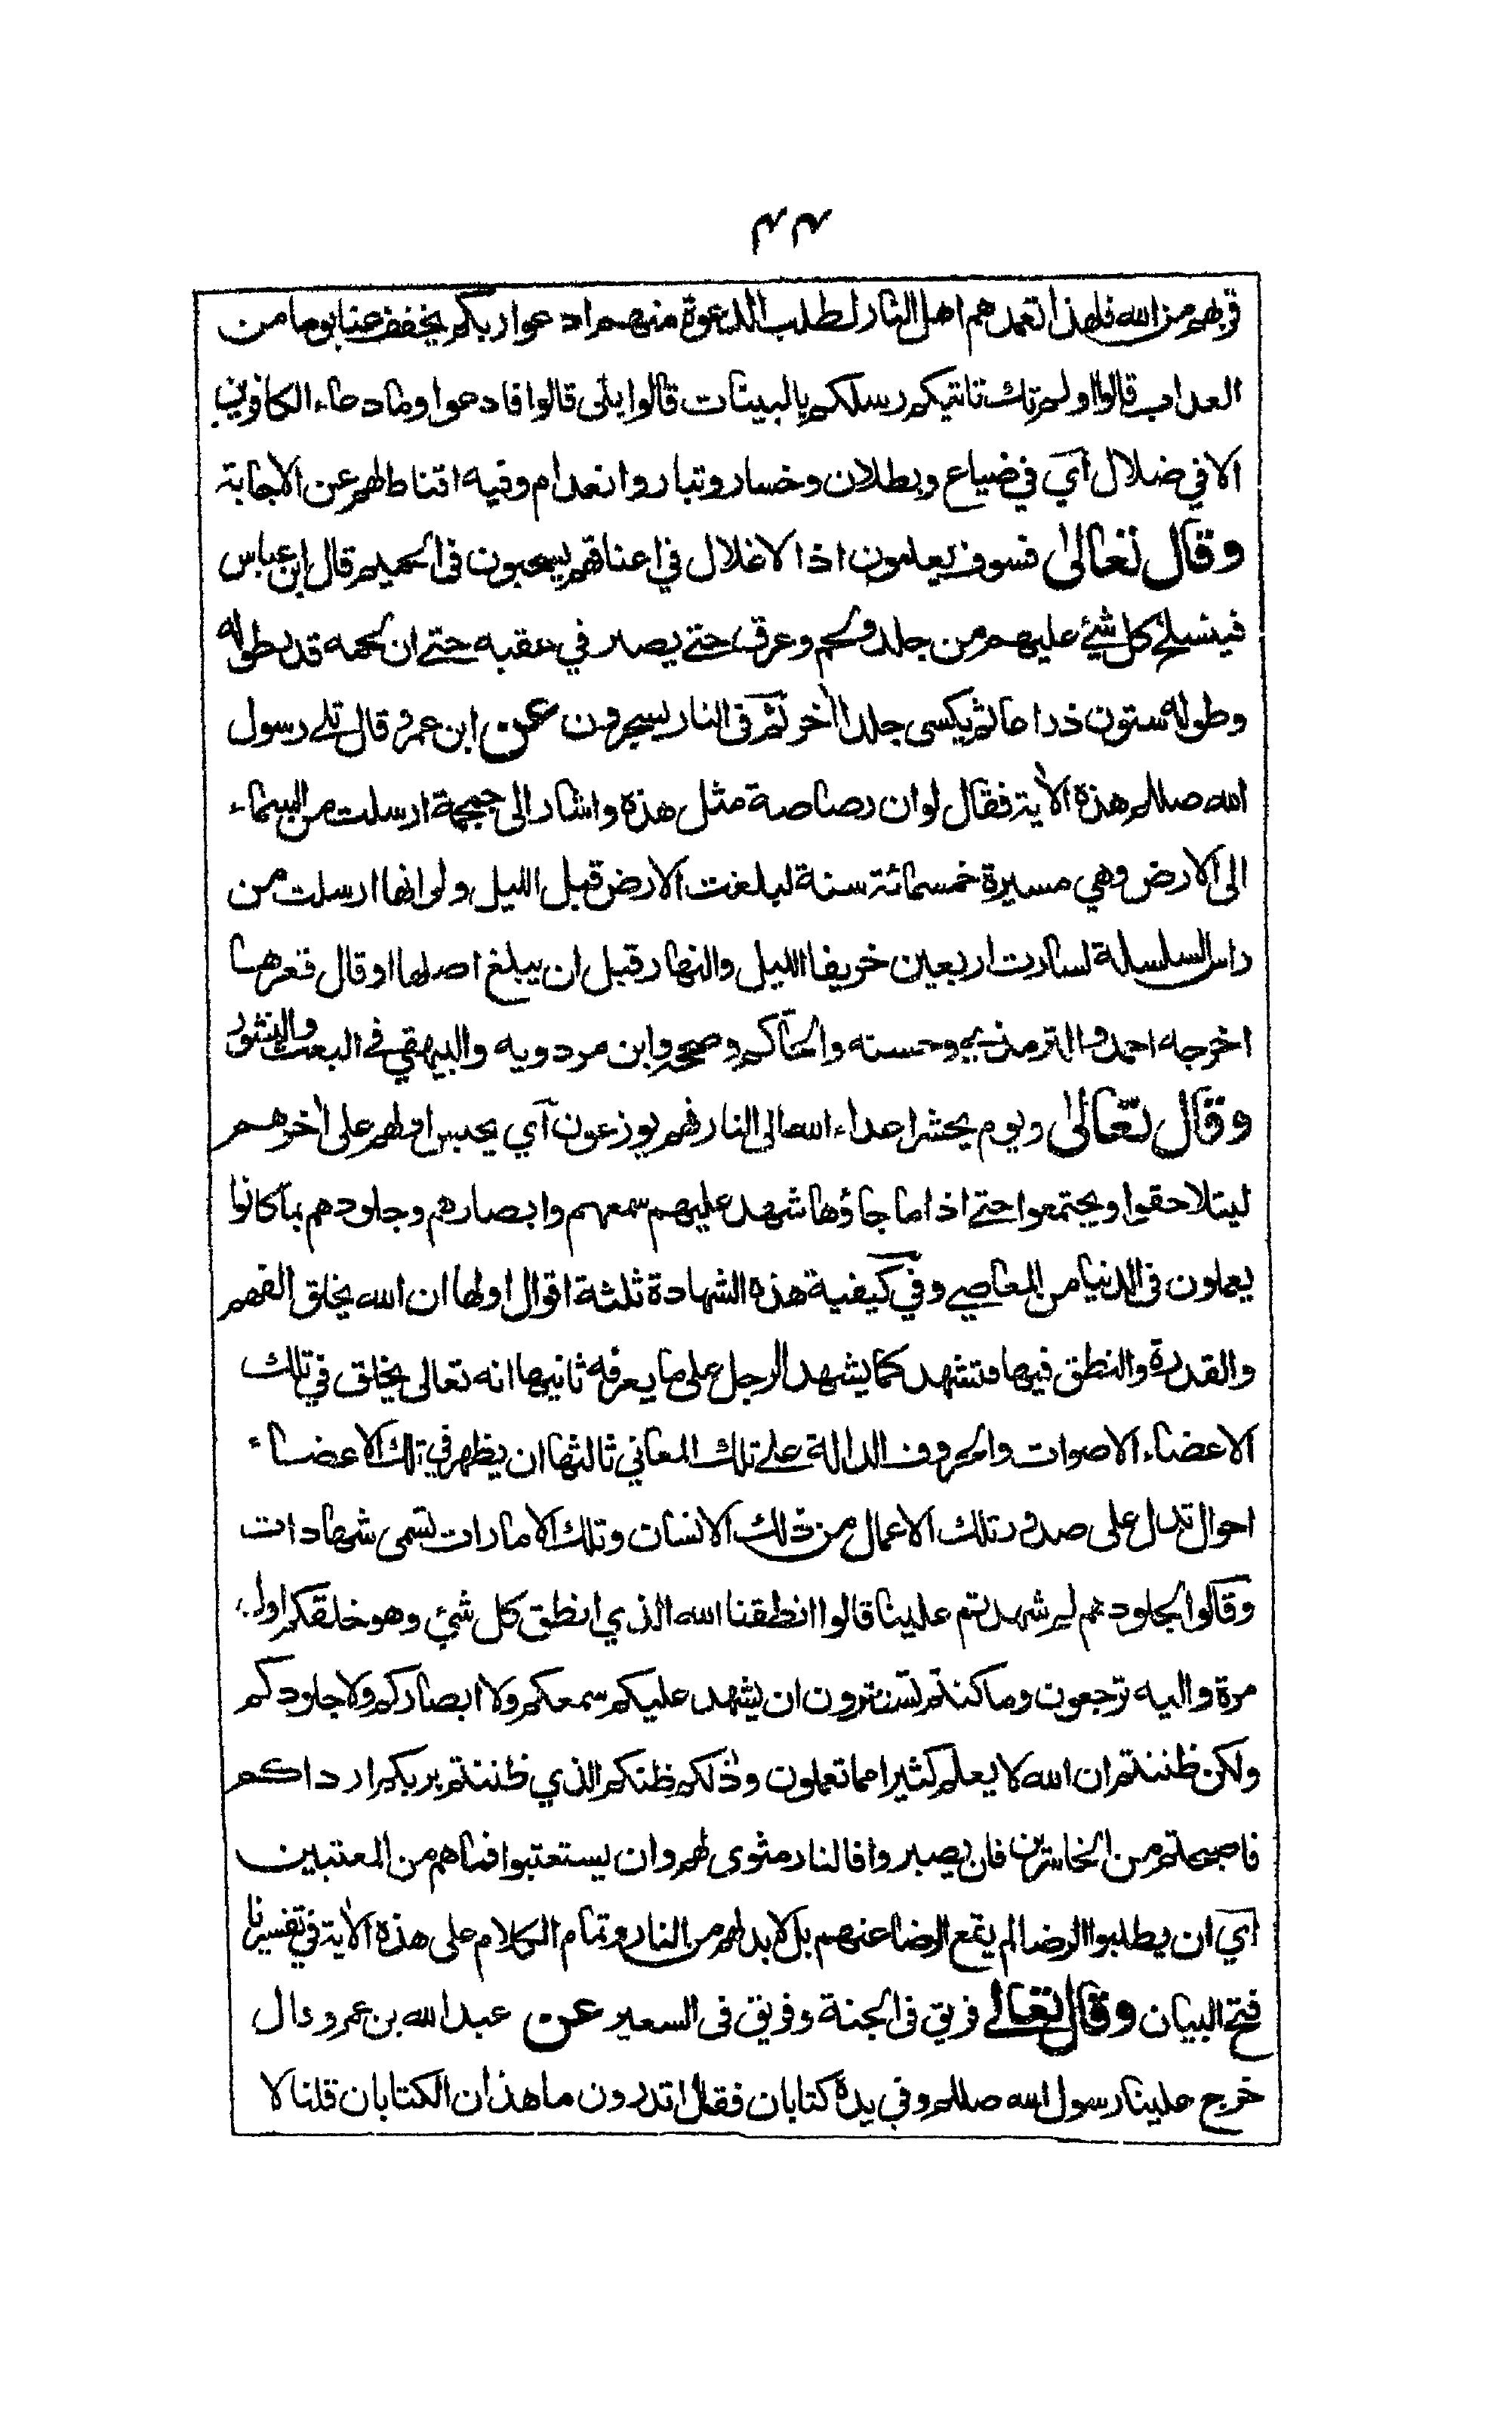 ٤٤
قربهم من الله فلهذا تعمدهم اهل النار لطلب الدعوة منهم ادعوا ربكم يخفف عنا يوما من
العذاب قالوا اولم تك تاتيكم رسلكم بالبينات قالوا بلى قالوا فادعوا وما دعاء الكافرين
الا في ضلال آي في ضياع وبطلان وخسار وتبار وانعدام وفيه اقناط لهم عن الاجابة
وقال تعالى فسوف يعلمون اذا لاغلال في اعناقهم يسحبون فى الحميم قال ابن عباس
فينسلخ كل شيء عليهم من جلد ولحم وعرق حتى يصير في عقبه حتى ان لحمه قدر طوله
وطوله ستون ذراعا ثم يكسى جلدا اٰخر ثم فى النار يسجرون عن ابن عمرو قال تلى رسول
الله صللم هذه الاٰية فقال لوان رصاصة مثل هذه واشار الى جمجمة ارسلت من السماء
الى الارض وهي مسيرة خمسمائة سنة لبلغت الارض قبل الليل ولو انها ارسلت من
راس السلسلة لسارت اربعين خريفا الليل والنهار قبل ان يبلغ اصلها او قال قعرها
اخرجه احمد والترمذي وحسنه والحاكم وصححه وابن مردويه والبيهقي في البعث والنشور
وقال تعالى ويوم يحشر اعداء الله الى النار فهم يوزعون آي يحبس اولهم على اٰخرهم
ليتلاحقوا ويجتمعوا حتى اذا ما جاؤها شهد عليهم سمعهم وابصارهم وجلودهم بما كانوا
يعملون فى الدنيا من المعاصي وفي كيفية هذه الشهادة ثلثة اقوال اولها ان الله يخلق الفهم
والقدرة والنطق فيها فتشهد كما يشهد الرجل على ما يعرفه ثانيها انه تعالى يخلق في تلك
الاعضاء الاصوات والحروف الدالة على تلك المعاني ثالثها ان يظهر في تلك الاعضاء
احوال تدل على صدور تلك الاعمال من ذلك الانسان وتلك الامارات تسمى شهادات
وقالوا لجلودهم لم شهدتم علينا قالوا انطقنا الله الذي انطق كل شئ وهو خلقكم اول
مرة واليه ترجعون وما كنتم تستترون ان يشهد عليكم سمعكم ولا ابصاركم ولا جلودكم
ولكن ظننتم ان الله لا يعلم كثيرا مما تعملون وذٰلكم ظنكم الذي ظننتم بربكم ارداكم
فاصبحتم من الخاسرين فان يصبروا فالنار مثوى لهم وان يستعتبوا فما هم من المعتبين
آي ان يطلبوا الرضا لم يقع الرضا عنهم بل لا بد لهم من النار وتمام الكلام على هذه الاٰية في تفسيرنا
فتح البيان وقال تعالى فريق فى الجنة وفريق فى السعير عن عبد الله بن عمرو قال
خرج علينا رسول الله صللم وفي يده كتابان فقال اتدرون ما هذان الكتابان قلنا لا